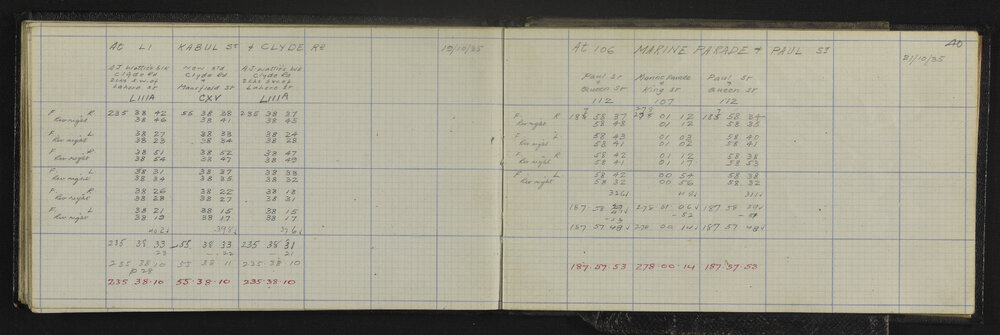 At L1 KABUL St & CLYDE Rd 19/10/35
A.J. Wattie's blk New std A.J. Wattie's blk
Clyde Rd Clyde Rd Clyde Rd
2chs s.w. of & 2chs s.w. of
Lahore St Mansfield St Lahore St
LIIIA CXV LIIIA
F R 235 38 42 55 38 38 235 38 37
Rev night 38 46 38 41 38 45
F L 38 27 38 33 38 24
Rev night 38 23 38 34 38 28
F R 38 51 38 52 38 47
Rev night 38 54 38 47 38 49
F L 38 31 38 37 38 33
Rev night 38 34 38 35 38 32
F R 38 26 38 22 38 18
Rev night 38 28 38 27 38 31
F L 38 21 38 15 38 15
Rev night 38 19 38 17 38 17
402 398 376
235 38 33 55 38 33 235 38 31
23 - 22 - 21
235 38 10 55 38 11 235 38 10
p 28
235 38.10 55.38.10 235.38.10
40
At 106 MARINE PARADE & PAUL St 21/10/35
Paul St Marine Parade Paul St
& & &
Queen St King St Queen St
112 107 112
F R 58 37 01 12 58 34
Rev night 58 43 01 12 58 35
F L 58 43 01 03 58 40
Rev night 58 41 01 02 58 41
F R 58 42 01 12 58 38
Rev night 58 41 01 17 58 53
F L 58 42 00 54 58 38
Rev night 58 32 00 56 58 32
187 58 278 01 06 187 58
- 52
187 57 48 278 00 14 187 57 48
187.57.53 278.00.14 187.57.53